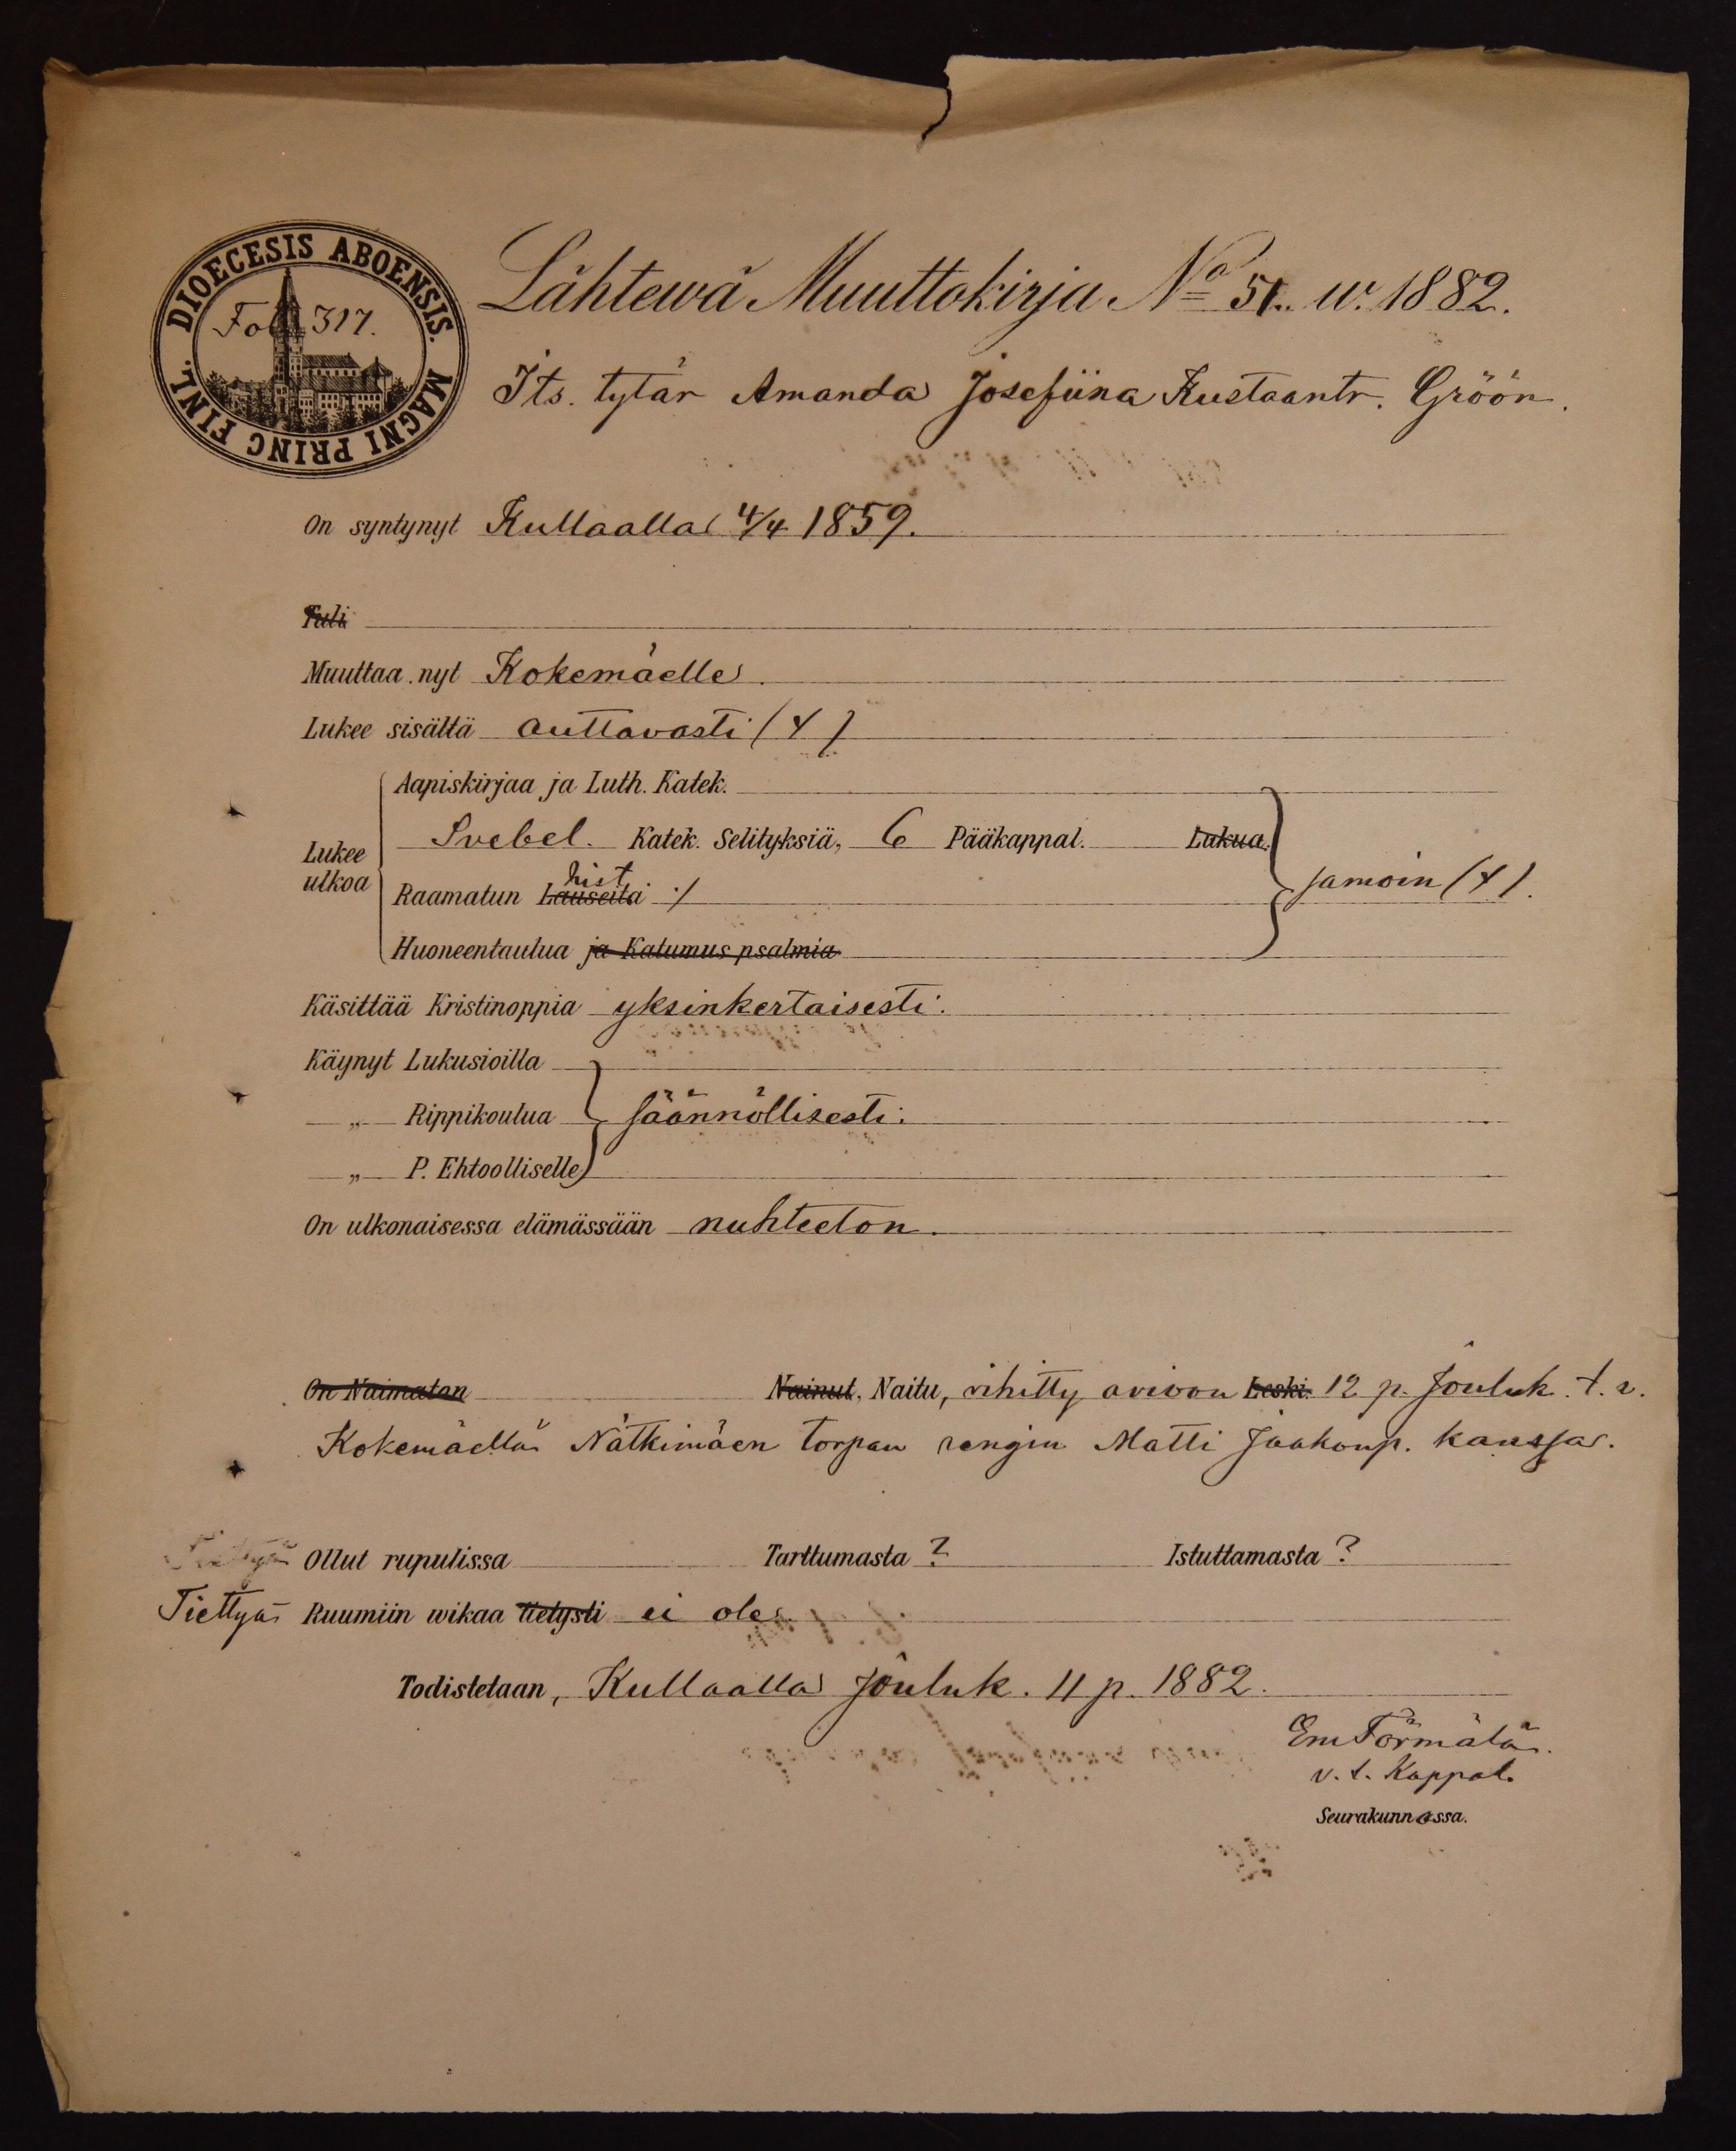 DIOECESIS ABOENSIS. MAGNI PRINC FINL.
Fol 317.
Lähtewä Muuttokirja No 51. w. 1882.
Its. tytär Amanda Josefiina Kustaantr. Gröön.
On syntynyt Kullaalla 4/4 1859.
Tuli
Muuttaa nyt Kokemäelle.
Lukee sisältä auttavasti (4)
Aapiskirjaa ja Luth. Katek.
Lukee ulkoa
Svebel. Katek. Selityksiä, 6 Pääkappal. Lukua.
hist
Raamatun Lauseita ./
samoin (4).
Huoneentaulua ja Katumus psalmia
Käsittää Kristinoppia yksinkertaisesti.
Käynyt Lukusioilla
„ Rippikoulua säännöllisesti.
„ P. Ehtoolliselle
On ulkonaisessa elämässään nuhteeton.
On Naimaton Nainut, Naitu, vihitty avioon Leski. 12 p. Jouluk. t. v.
Kokemäellä Nätkimäen torpan rengin Matti Jaakonp. kanssa.
Ollut rupulissa Tarttumasta ? Istuttamasta ?
Tiettyä Ruumiin wikaa tietysti ei ole.
Todistetaan, Kullaalla Jouluk. 11 p. 1882.
Em Törmälä.
v. t. Kappal.
Seurakunnassa.